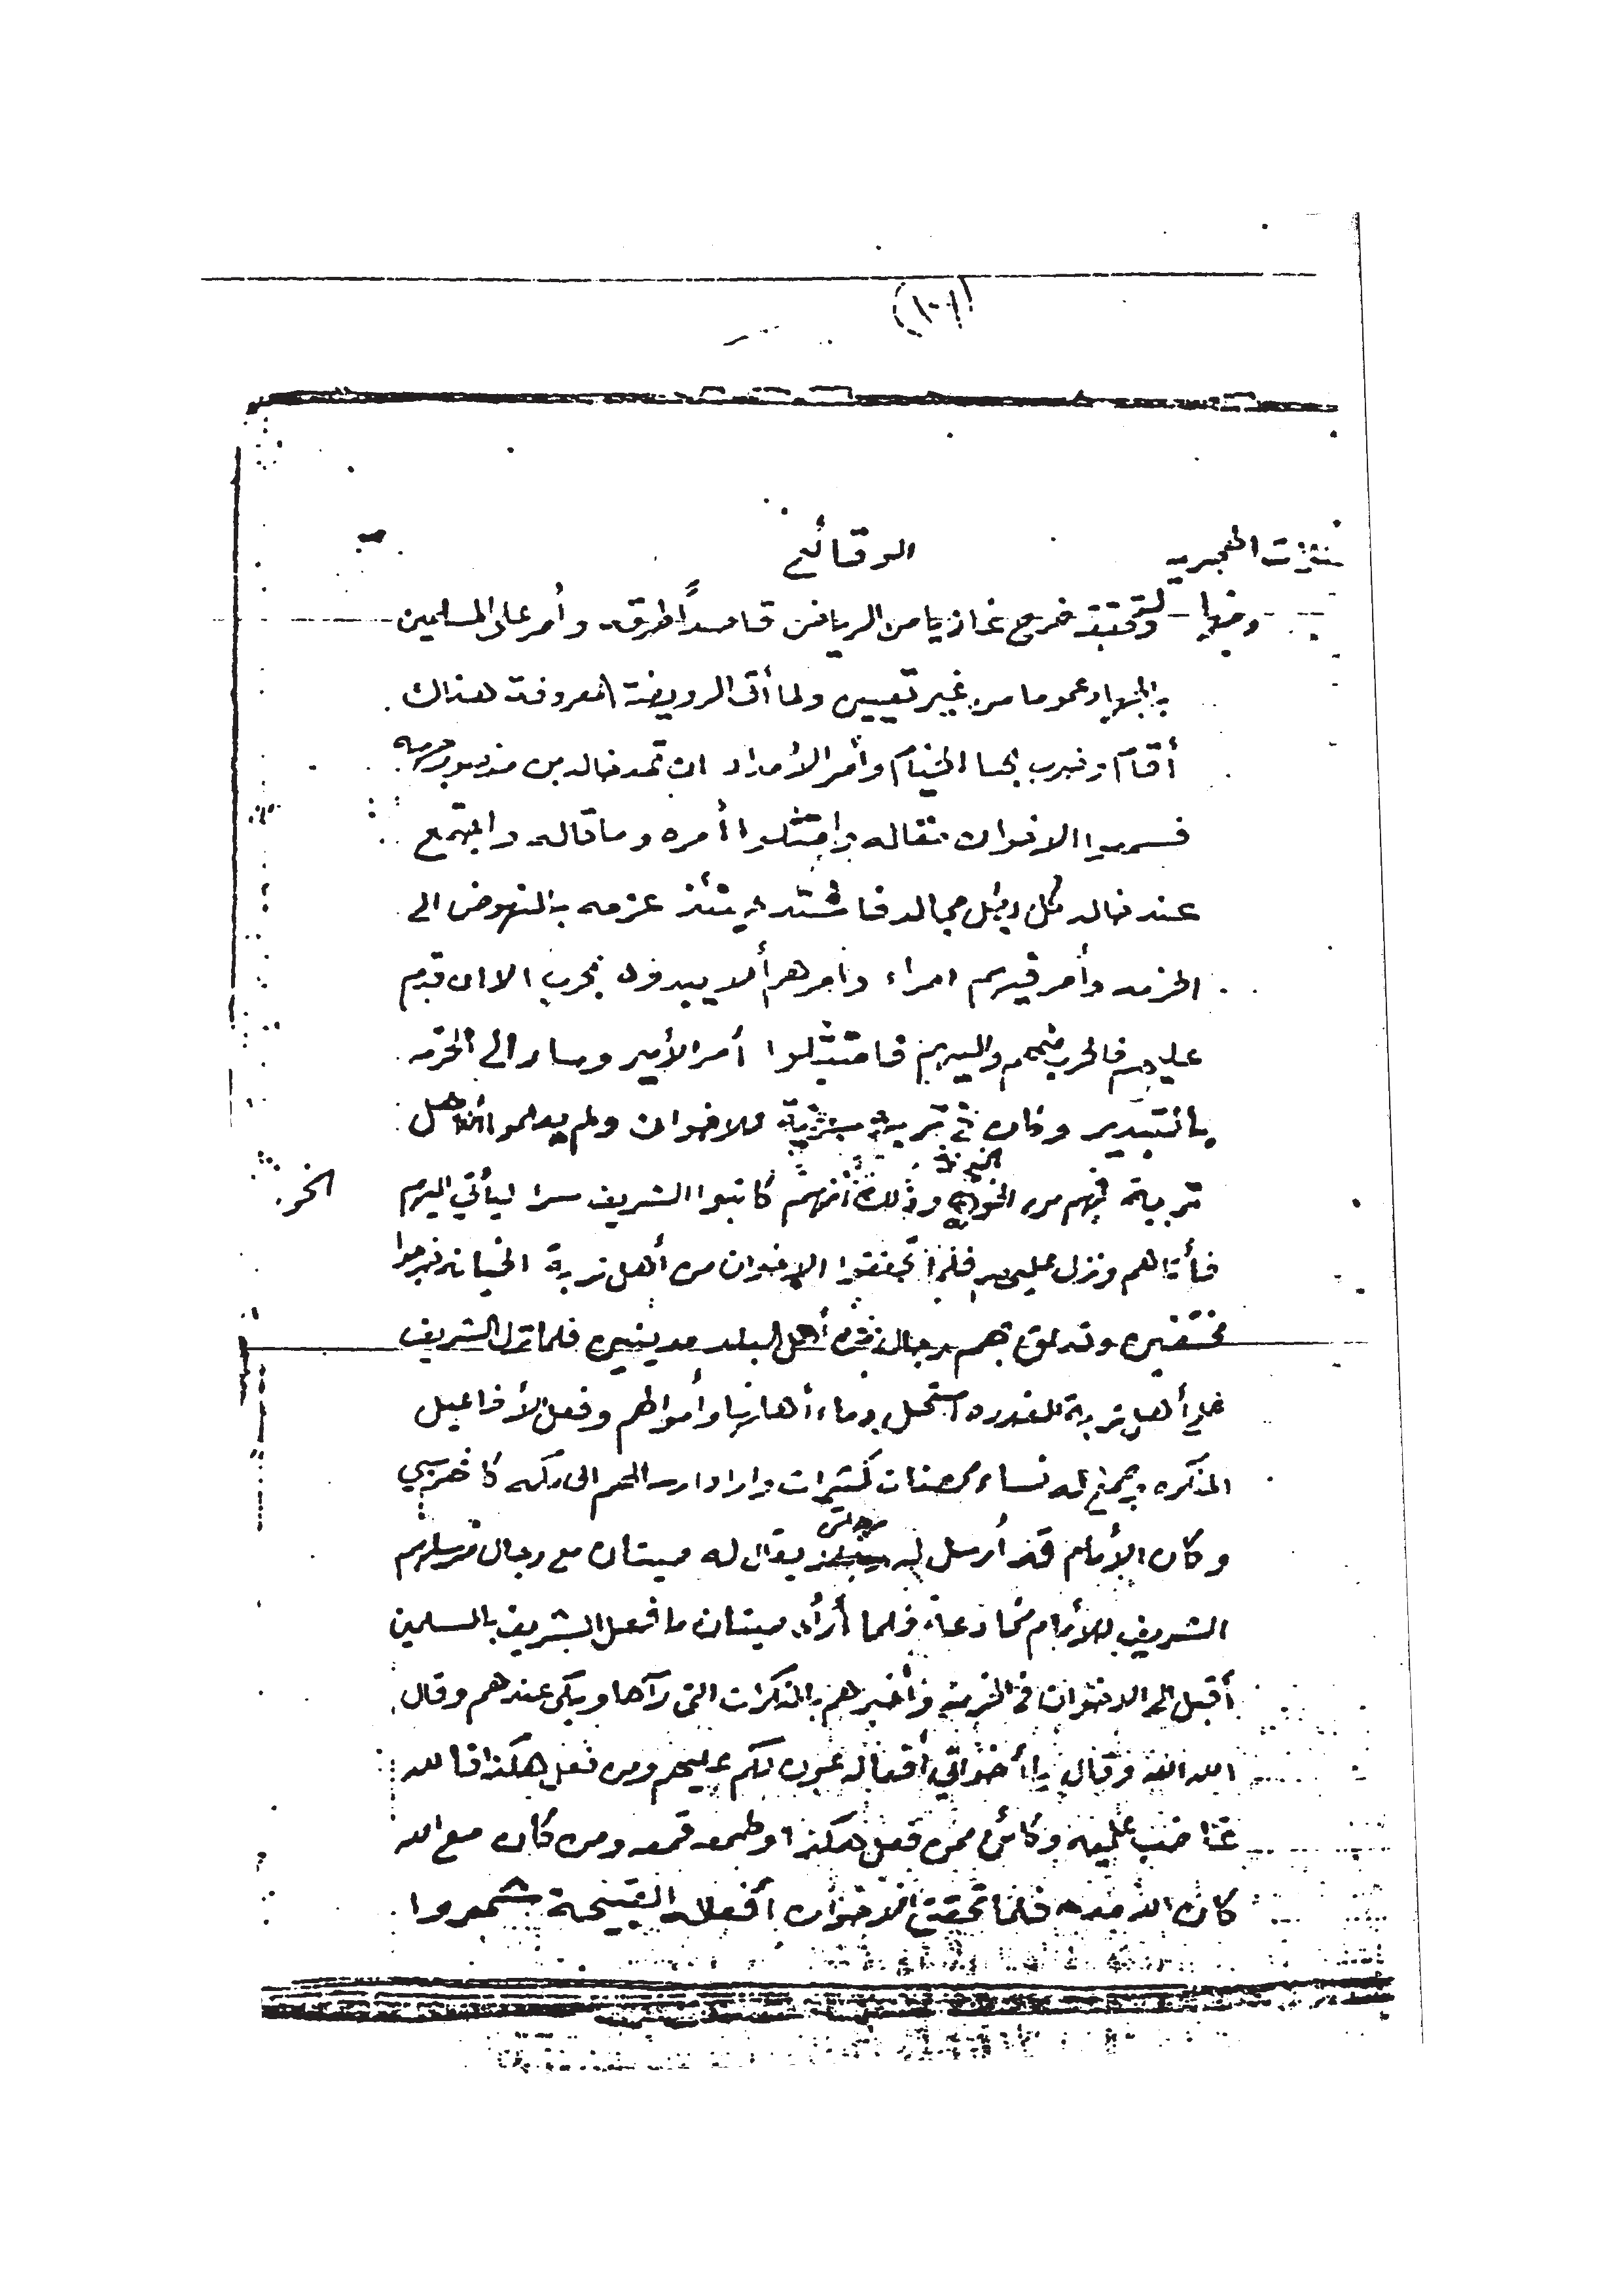 (١٠١)
الهجرية الوقائع
وفيها خرج غازيا من الرياض قاصداً طرقه وأمر على المسلمين
بالجهاد عموما من غير تعيين ولما أتى الرويضة المعروفة هناك
أقام وضرب بها الخيام وأمر الأمداد ان تمد خالد بن
الاخوان مقاله وامتثلوا أمره وما قاله واجتمع
عند خالد كل بطل مجالد فاشتد عزمه بالنهوض الى
الخرمه وأمر فيهم امراء وأمرهم ألا يبدون بحرب الا ان قدم
عليهم فالحرب منهم واليهم فامتثلوا أمر الأمير وساروا الى الخرمه
وكان في تربة سرية للاخوان ولم يعلموا أن اهل
تربة فيهم من الخون الخيانة وذلك أنهم كاتبوا الشريف سرا ليأتي اليهم
الخر
فأتاهم ونزل عليهم فلما تحققوا الاخوان من أهل تربة الخيانة خرجوا
مختفين وتعلق بهم رجال من أهل البلد مدينين فلما نزل الشريف
على أهل تربة للغدره استحل دماء أهاليها وأموالهم وفعل الأفاعيل
المنكره نساء محصنات كثيرات وارادارسالهم الى مكه
وكان الأمام قد أرسل له رجلا يقال له ميتان مع رجال
الشريف للأمام مخادعة فلما أراد ميتان ما فعل الشريف بالمسلمين
أقبل الى الاخوان في الخرمه وأخبرهم بالمنكرات التى رآها وبكى عندهم وقال
الله الله وقال يا أخواني أفعاله عون لكم عليهم ومن فعل هكذا فالله
غاضب عليه وكأين ممن فعل هكذا وطبعه قمعه ومن كان مع الله
كان الله معه فلما تحقق الاخوان أفعاله القبيحة شمروا